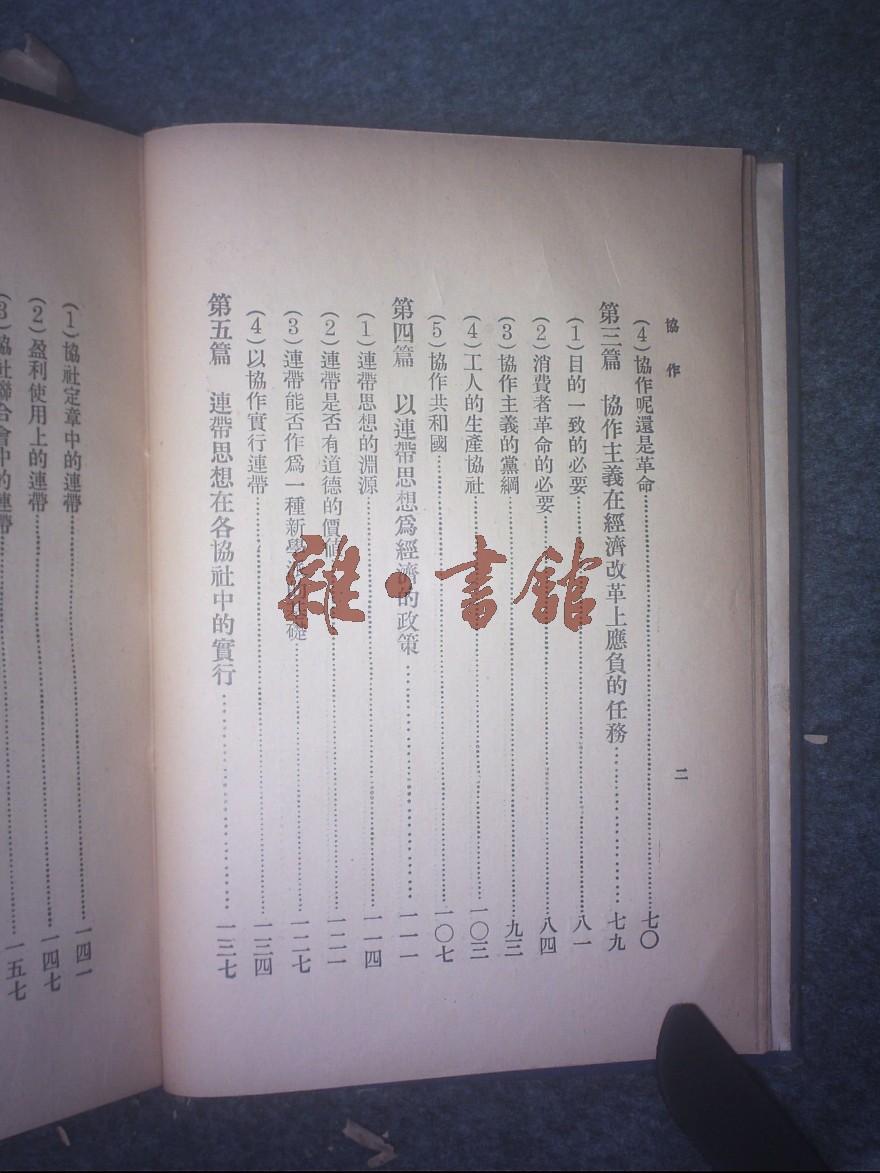 協作
二
(4)協作呢還是革命……七〇
第三篇 協作主義在經濟改革上應負的任務……七九
(1)目的一致的必要……八一
(2)消費者革命的必要……八四
(3)協作主義的黨綱……九三
(4)工人的生產協社……一〇三
(5)協作共和國……一〇七
第四篇 以連帶思想爲經濟的政策……一一一
(1)連帶思想的淵源……一一四
(2)連帶是否有道德的價值……一二一
(3)連帶能否作爲一種新學 礎……一二七
(4)以協作實行連帶……一三四
第五篇 連帶思想在各協社中的實行……一三七
(1)協社定章中的連帶……一四一
(2)盈利使用上的連帶……一四七
(3)協社聯合會中的連帶……一五七
雜·書館